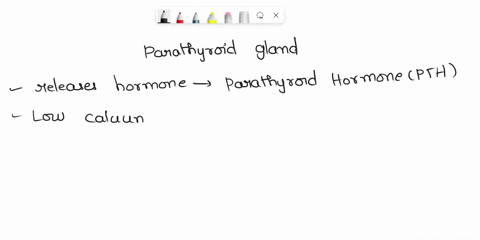 Parathyroid gland
- releases hormone → Parathyroid Hormone (PTH)
- Low caluun